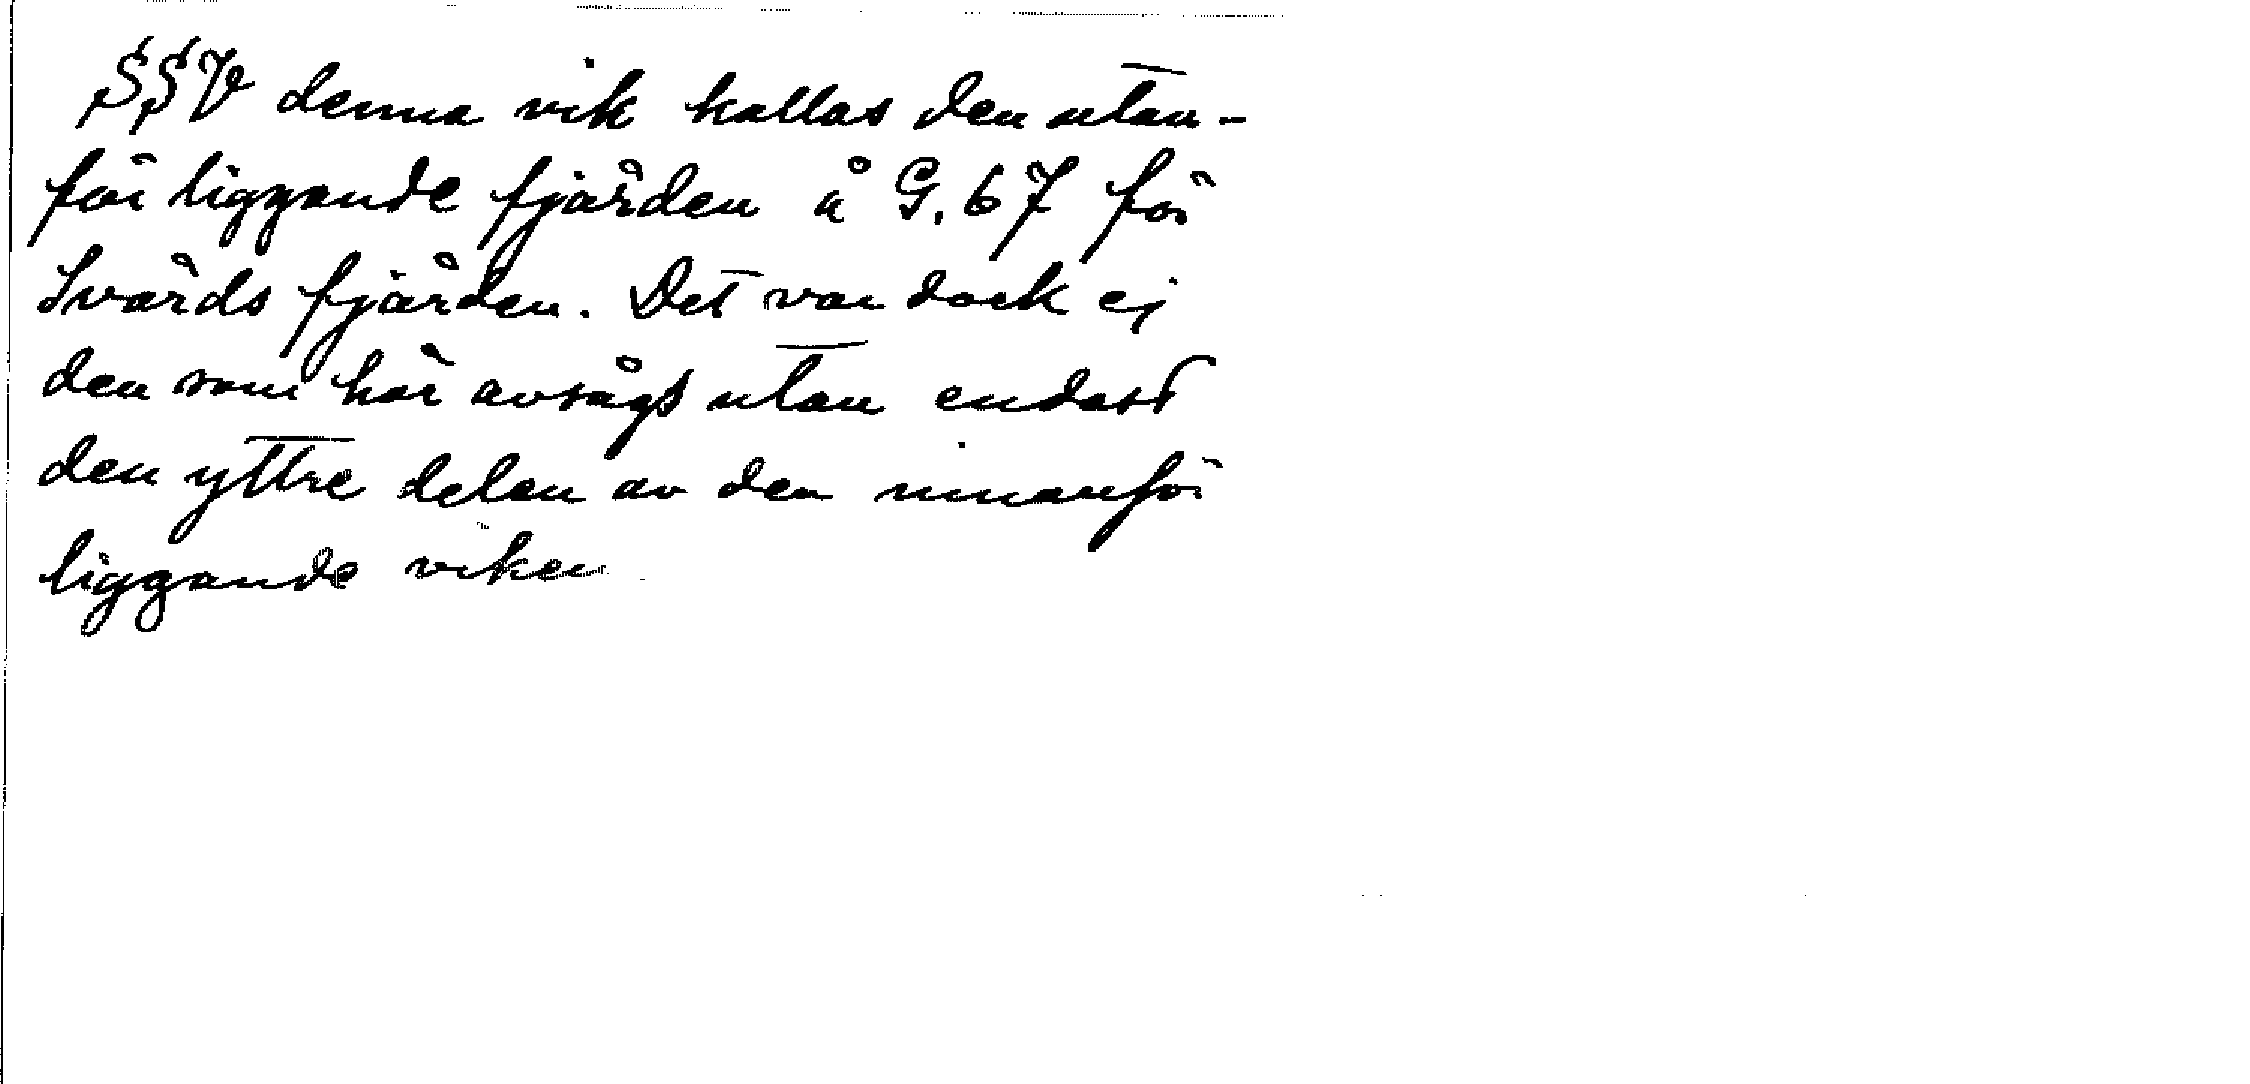 §§V denna vik kallas den utan-
för liggande fjärden å G. 67 för
Svärds fjärden. Det var dock ej
den som här avsågs utan endast
den yttre delen av den innanför
liggande viken